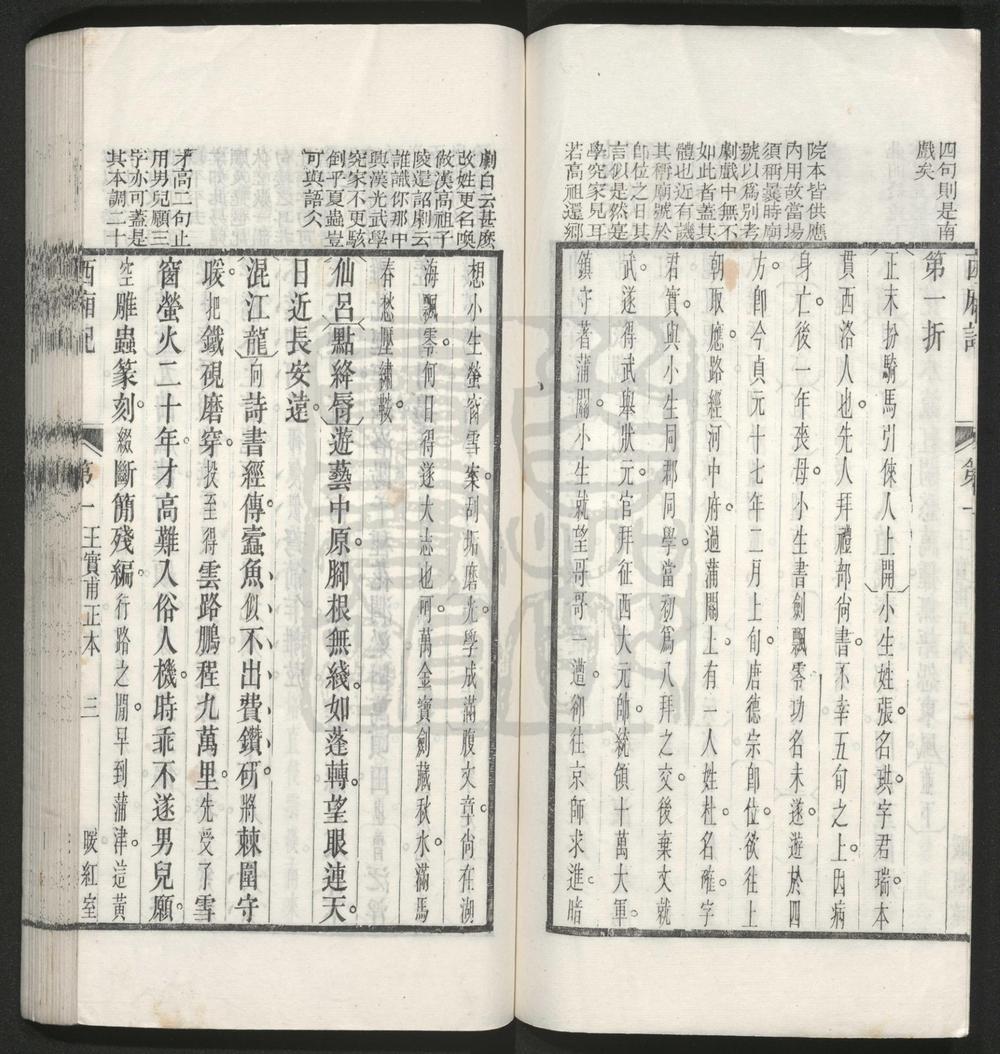 四句則是南
戲矣
院本皆供應
內用故當場
須稱曩時廟
號以爲別老
劇戲中無不
如此者蓋其
體也近有譏
其稱廟號於
卽位之日其
言似是然寔
學究家見耳
若高祖還鄉
西廂記
第一折
正末扮騎馬引倈人上開小生姓張名珙字君瑞本
貫西洛人也先人拜禮部尙書不幸五旬之上因病
身亡後一年喪母小生書劍飄零功名未遂遊於四
方卽今貞元十七年二月上旬唐德宗卽位欲往上
朝取應路經河中府過蒲關上有一人姓杜名確字
君實與小生同郡同學當初爲八拜之交後棄文就
武遂得武舉狀元官拜征西大元帥統領十萬大軍
鎮守著蒲關小生就望哥哥一遭卻往京師求進暗
劇白云甚麽
改姓更名喚
做漢高祖子
陵還詔劇云
誰識你那中
興漢光武學
究家不更駭
倒乎夏蟲豈
可與語久
才高二句止
用男兒願三
字亦可蓋是
其本調二十
想小生螢窗雪案刮垢磨光學成滿腹文章尙在湖
海飄零何日得遂大志也呵萬金寶劍藏秋水滿馬
春愁壓繡鞍
仙呂點絳唇遊藝中原腳根無綫如蓬轉望眼連天
日近長安遠
混江龍向詩書經傳蠹魚似不出費鑽硏將棘圍守
暖把鐵硯磨穿投至得雲路鵬程九萬里先受了雪
窗螢火二十年才高難入俗人機時乖不遂男兒願
空雕蟲篆刻綴斷簡殘編行路之閒早到蒲津這黃
西廂記
第一
王實甫正本
三
暖紅室